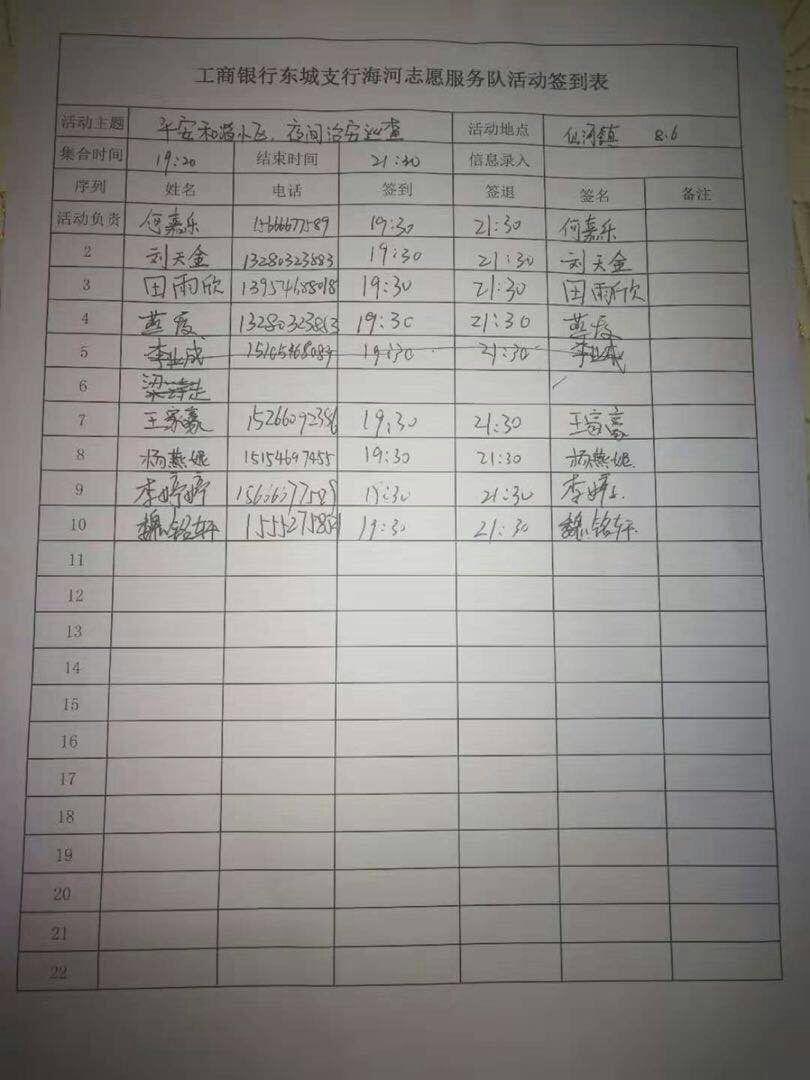 工商银行东城支行海河志愿服务队活动签到表
活动主题 平安和谐小区、夜间治安巡查 活动地点 仙河镇 8.6
集合时间 19:20 结束时间 21:30 信息录入
序列 姓名 电话 签到 签退 签名 备注
活动负责 何嘉乐 15666677589 19:30 21:30 何嘉乐
2 刘天金 13280323883 19:30 21:30 刘天金
3 田雨欣 13954688018 19:30 21:30 田雨欣
4 燕 19:30 21:30 燕
5 李业成 19:30 21:30 李业成
6 梁
7 王家豪 19:30 21:30 王家豪
8 杨燕妮 15154697455 19:30 21:30 杨燕妮
9 李婷婷 19:30 21:30 李婷
10 魏铭轩 19:30 21:30 魏铭轩
11
12
13
14
15
16
17
18
19
20
21
22